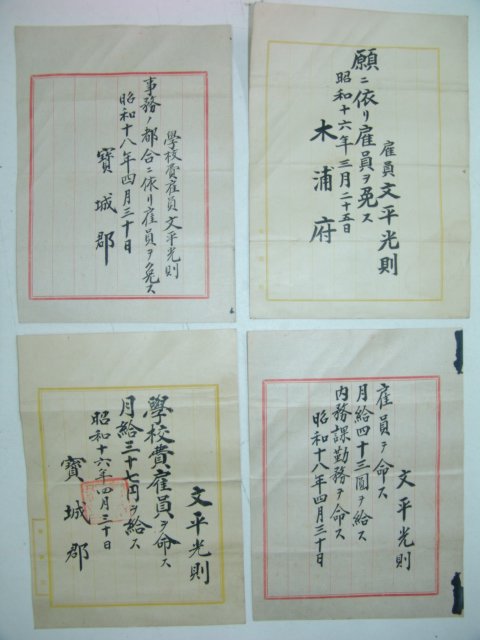 雇員 文平光則
願ニ依リ雇員ヲ免ス
昭和十六年三月二十五日
木浦府
學校費雇員 文平光則
事務ノ都合ニ依リ雇員ヲ免ス
昭和十八年四月三十日
寶城郡
文平光則
雇員ヲ命ス
月給四十三圓ヲ給ス
內務課勤務ヲ命ス
昭和十八年四月三十日
文平光則
學校費雇員ヲ命ス
月給三十七円ヲ給ス
昭和十六年四月三十日
寶城郡